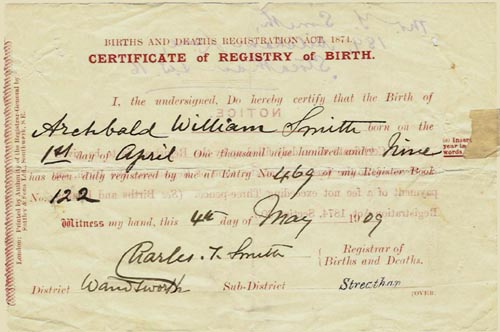 BIRTHS AND DEATHS REGISTRATION ACT, 1874.
CERTIFICATE OF REGISTRY OF BIRTH.
I, the undersigned, Do hereby certify that the Birth of
Archbald William Smith born on the
1st day of April One thousand nine hundred and Nine
Insert
year in
words.
has been duly registered by me at Entry No. 469 of my Register Book
No. 122
Witness my hand, this 4th day of May 1909
Charles. T. Smith Registrar of
Births and Deaths.
District Wandsworth Sub-District Streathan
[OVER.
London: Printed by Authority of the Registrar-General by